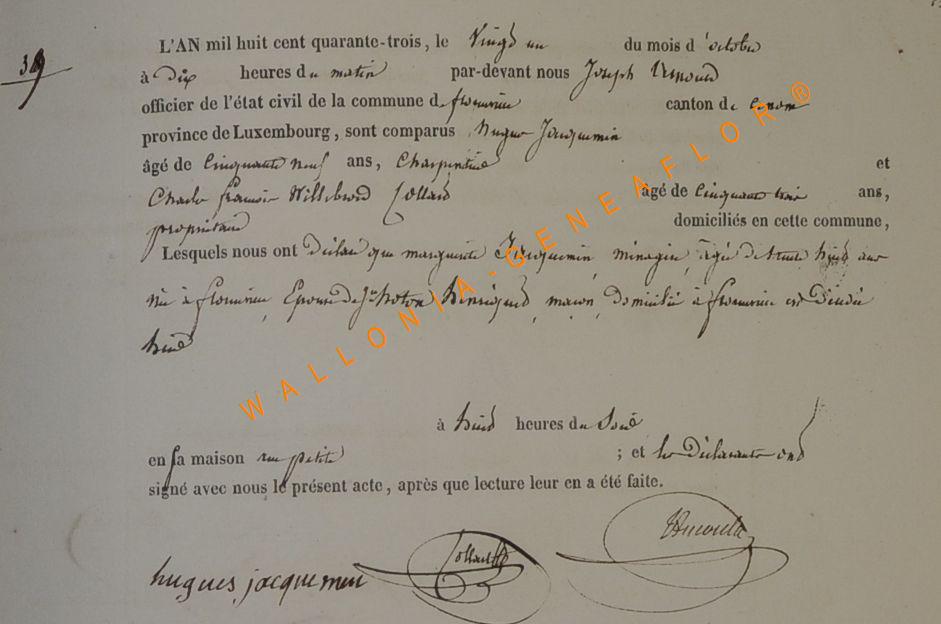 39
L'AN mil huit cent quarante-trois, le Vingt un du mois d'octobre
à Dix heures du matin par-devant nous Joseph
officier de l'état civil de la commune de florenville canton de
province de Luxembourg, sont comparus Hugues Jacquemin
âgé de Cinquante neuf ans, Charpentier et
Charles françois Willibrord Collard âgé de Cinquante trois ans,
propriétaire domiciliés en cette commune,
Lesquels nous ont Déclaré que marguerite Jacquemin, ménagère, âgée de trente huit ans
née à florenville, Epouse de hennequet, maçon, domicilié à florenville est Décédée
hier
à huit heures du Soir
en sa maison rue petite ; et les Déclarants ont
signé avec nous le présent acte, après que lecture leur en a été faite.
hugues jacquemin Collard
WALLONIA-GENEAFLOR®